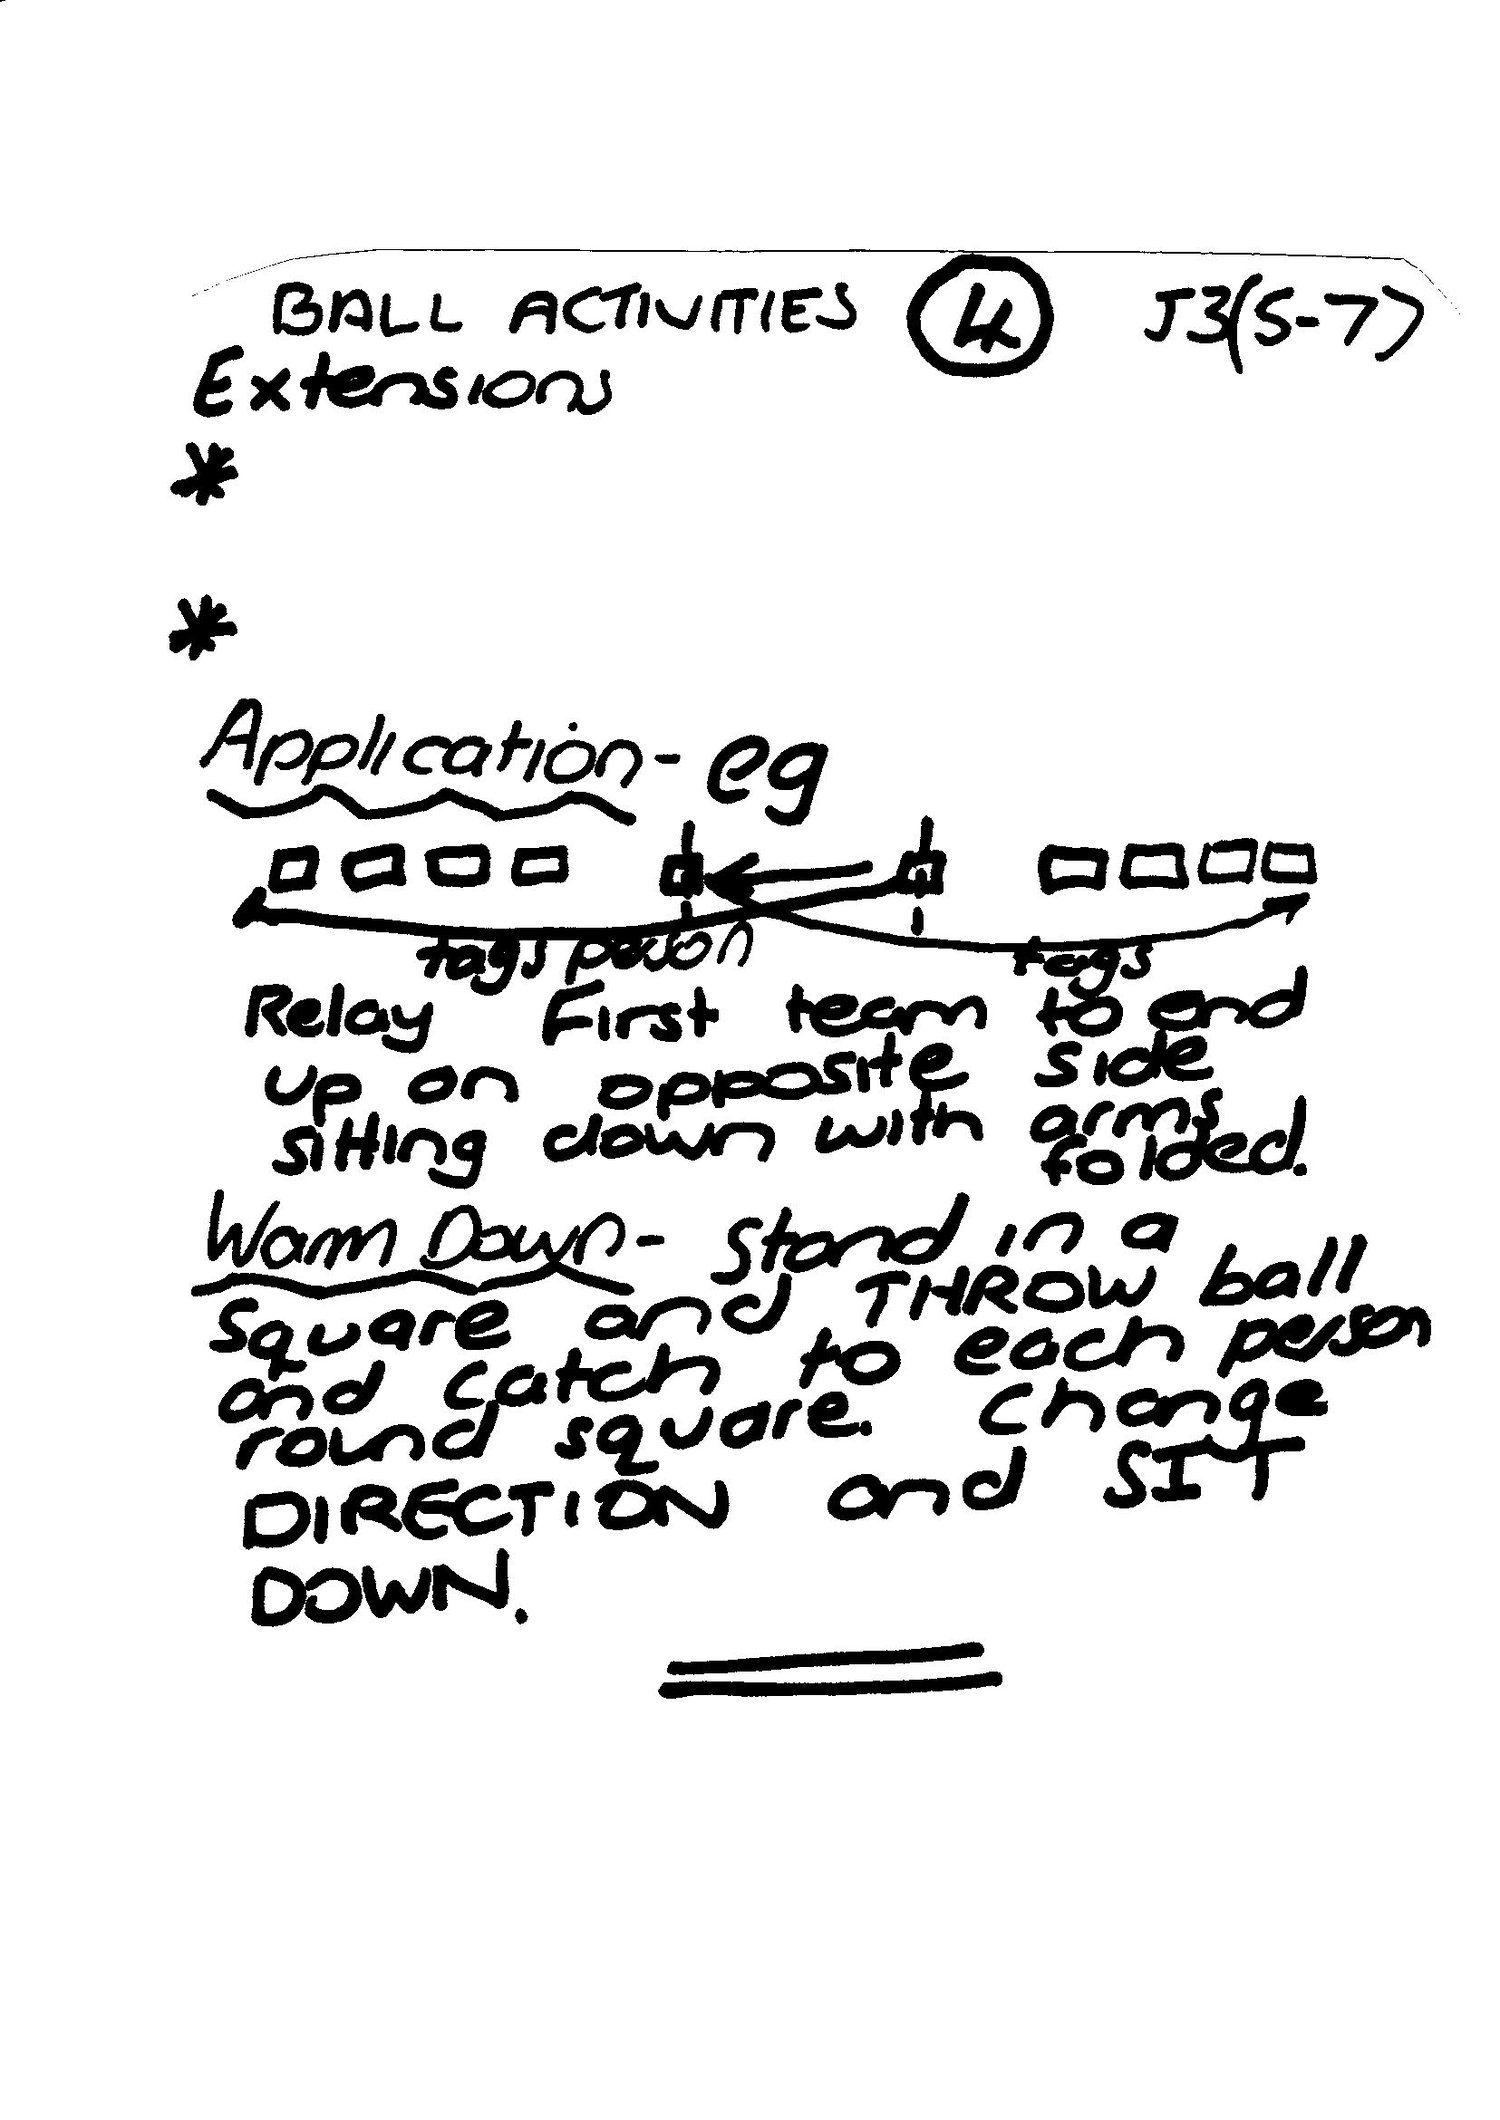 BALL ACTIVITIES 4 J3(5-7)
Extensions
*
*
Application - eg
tags person tags
Relay First team to end
up on opposite side
sitting down with arms
folded.
Warm Down - Stand in a
square and THROW ball
and catch to each person
round square. Change
DIRECTION and SIT
DOWN.